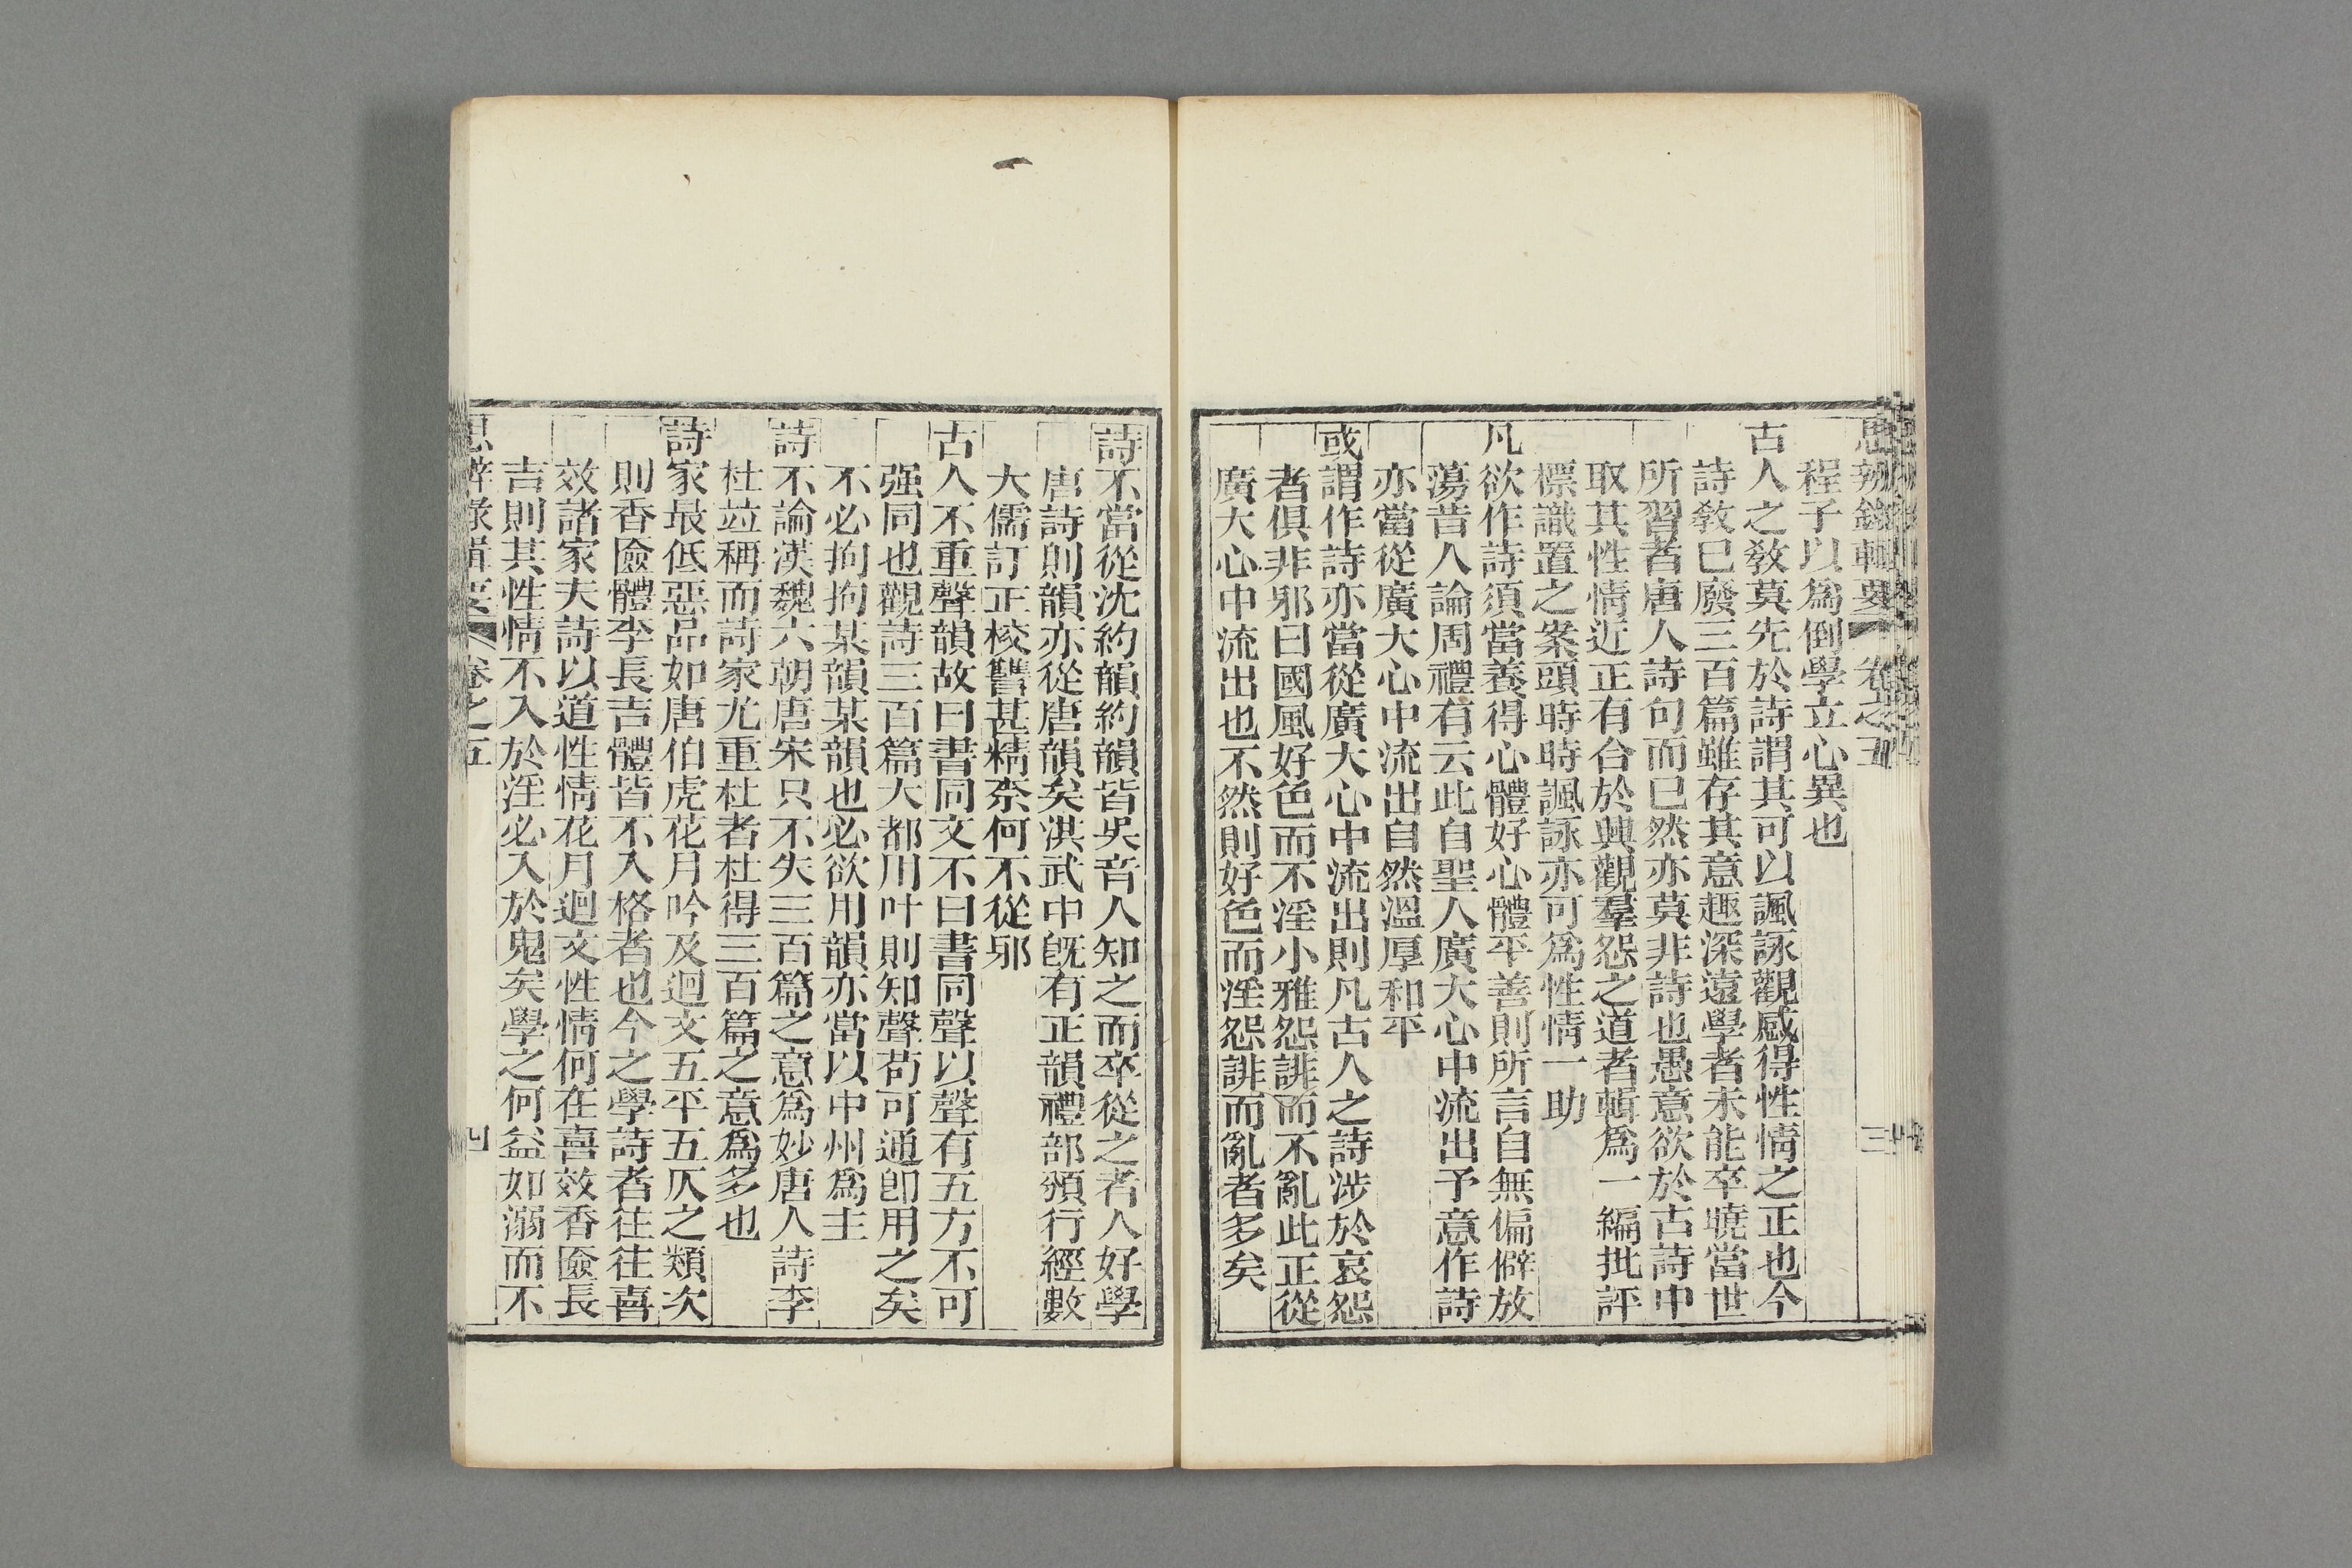 思辨錄輯要 卷之五 三
程子以爲倒學立心異也
古人之敎莫先於詩謂其可以諷詠觀感得性情之正也今
詩敎已廢三百篇雖存其意趣深遠學者未能卒曉當世
所習者唐人詩句而已然亦莫非詩也愚意欲於古詩中
取其性情近正有合於興觀羣怨之道者輯爲一編批評
標識置之案頭時時諷詠亦可爲性情一助
凡欲作詩須當養得心體好心體平善則所言自無偏僻放
蕩昔人論周禮有云此自聖人廣大心中流出予意作詩
亦當從廣大心中流出自然溫厚和平
或謂作詩亦當從廣大心中流出則凡古人之詩涉於哀怨
者俱非邪曰國風好色而不淫小雅怨誹而不亂此正從
廣大心中流出也不然則好色而淫怨誹而亂者多矣
詩不當從沈約韻約韻皆吳音人知之而卒從之者人好學
唐詩則韻亦從唐韻矣洪武中旣有正韻禮部頒行經數
大儒訂正校讐甚精柰何不從邪
古人不重聲韻故曰書同文不曰書同聲以聲有五方不可
强同也觀詩三百篇大都用叶則知聲苟可通卽用之矣
不必拘拘某韻某韻也必欲用韻亦當以中州爲主
詩不論漢魏六朝唐宋只不失三百篇之意爲妙唐人詩李
杜竝稱而詩家尤重杜者杜得三百篇之意爲多也
詩家最低惡品如唐伯虎花月吟及迴文五平五仄之類次
則香匳體李長吉體皆不入格者也今之學詩者往往喜
效諸家夫詩以道性情花月迴文性情何在喜效香匳長
吉則其性情不入於淫必入於鬼矣學之何益如溺而不
思辨錄輯要 卷之五 四